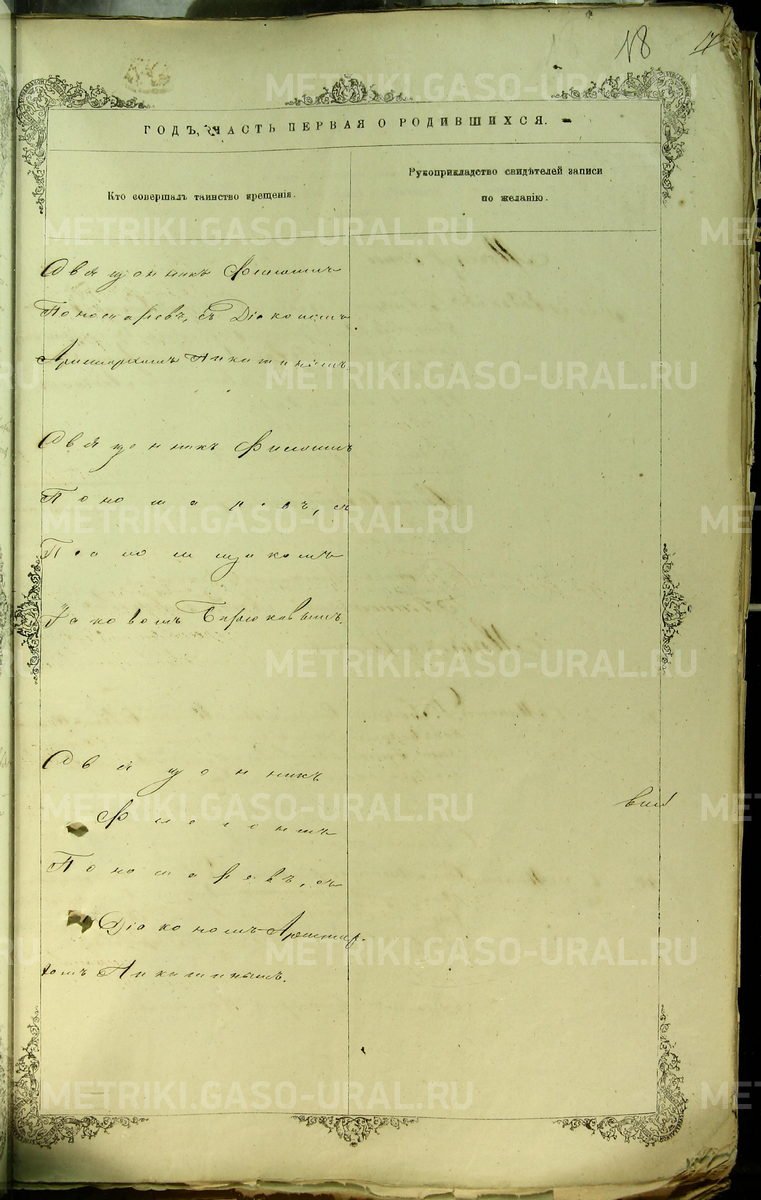 18
17
ГОДЪ, ЧАСТЬ ПЕРВАЯ О РОДИВШИХСЯ.
Кто совершалъ таинство крещенія.
Рукоприкладство свидѣтелей записи
по желанію.
Священникъ Филогонъ
Пономаревъ, съ Діакономъ
Аристархомъ Никитинымъ
Священникъ Филогонъ
Пономаревъ, съ
Псаломщикомъ
Яковомъ Бирюковымъ.
Священникъ
Филогонъ
Пономаревъ, съ
Діакономъ Аристар-
хомъ Никитинымъ.
METRIKI.GASO-URAL.RU